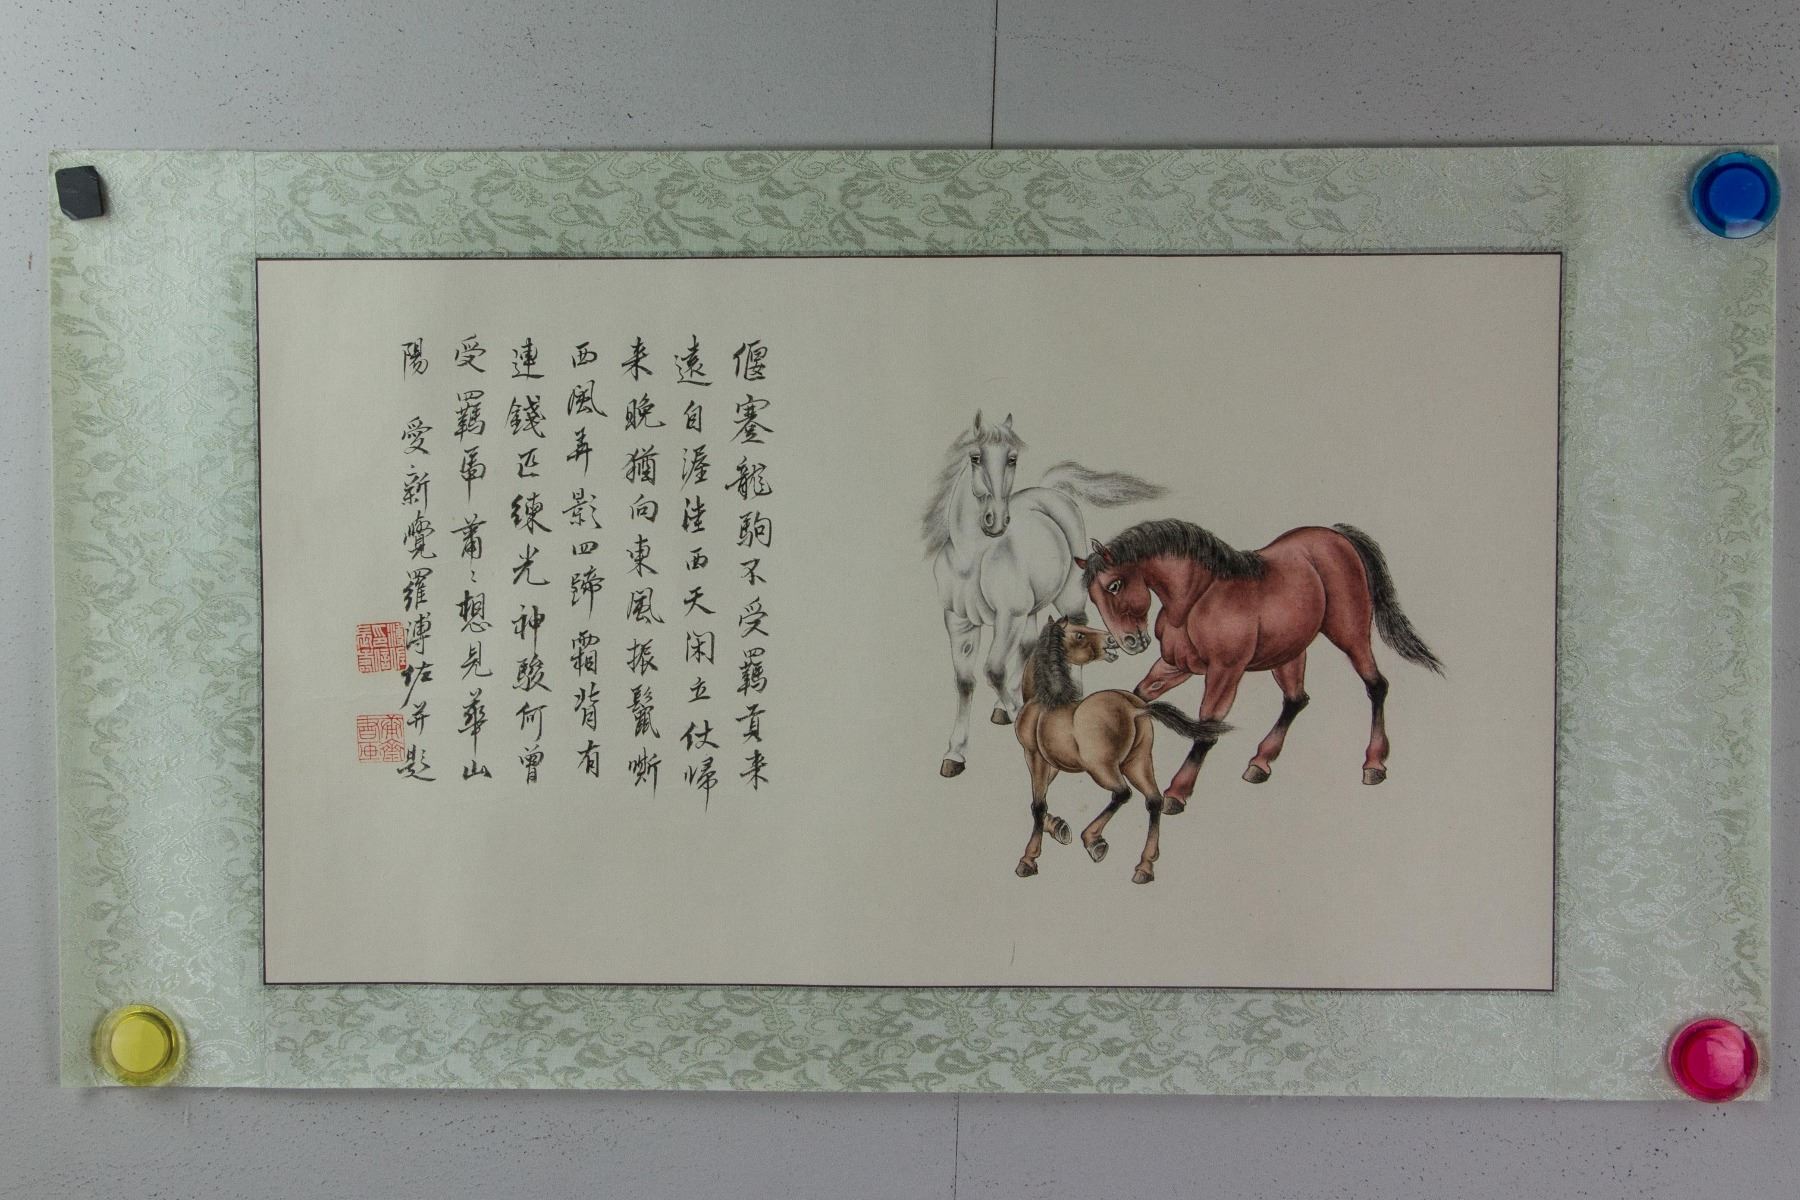 偃蹇龍駒不受羈貢来
遠自渥洼西天闲立仗歸
来晚猶向東風振鬣嘶
西風弄影四蹄霜背有
連錢匹練光神駿何曾
受羈馬蕭〻想見華山
陽 愛新覺羅溥佐并題